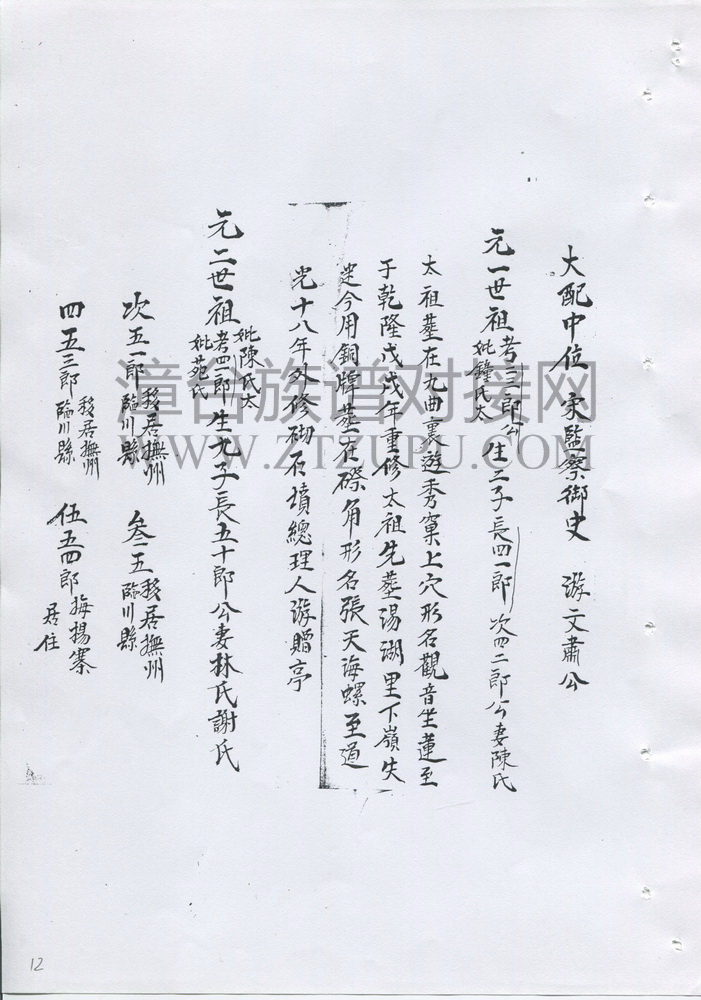 大配中位 宋監察御史 游文肅公
元一世祖 考三三郎 妣鍾氏太 生三子長四一郎 次四二郎公妻陳氏
太祖塟在九曲裏遊秀窠上穴形名觀音坐蓮至
于乾隆戊戌年重修太祖先塟湯湖里下嶺失
迷今用銅牌塟在磜角形名張天海螺至道
光十八年外修砌石墳總理人游贈亭
元二世祖 妣陳氏太 考四一郎 妣苑氏 生九子長五十郎公妻林氏謝氏
次五一郎 移居撫州臨川縣 叁二五 移居撫州臨川縣
四五三郎 移居撫州臨川縣 伍五四郎 梅揚寨居住
漳台族谱对接网
WWW.ZTZUPU.COM
12